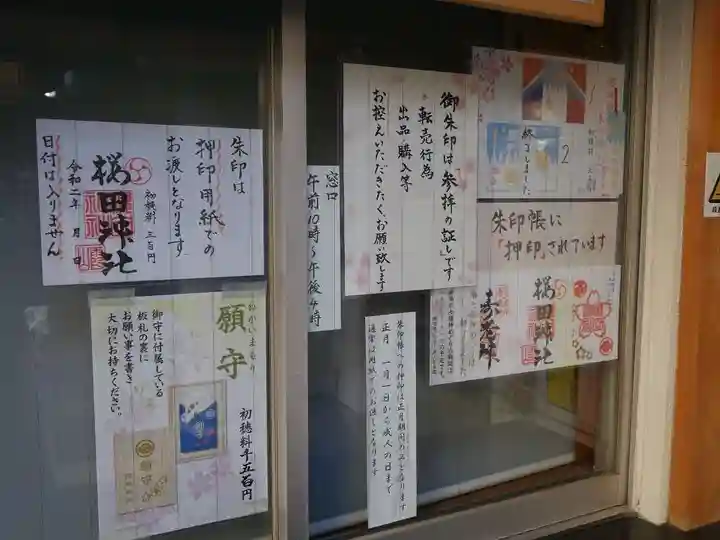 朱印は
押印用紙での
お渡しとなります
初穂料 三百円
桜田神社
令和二年 月 日
日付は入りません
願守
御守に付属している
板札の裏に
お願い事を書き
大切にお持ちください。
初穂料千五百円
窓口
午前10時~午後4時
御朱印は参拝の証しです
転売行為
出品購入等
お控えいただきたくお願い致します
朱印帳への押印は正月期間のみとなります
正月 一月一日から成人の日まで
通常は用紙でのお渡しとなります
1
2
終了しました
朱印帳に
「押印」されています
桜田神社